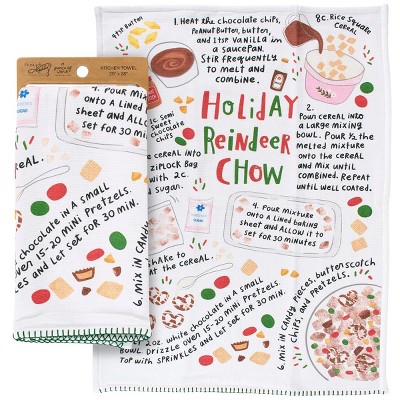 KITCHEN TOWEL
20" x 28"
4. POUR MIXTURE
ONTO A LINED
SHEET AND ALLOW
SET FOR 30 MIN
EREAL.
6. MIX IN CANDY
WHITE CHOCOLATE IN A SMALL
OVEN 15-20 MINI PRETZELS.
LES AND LET SET FOR 30 MIN.
1 TSP BUTTER
1. HEAT THE CHOCOLATE CHIPS,
PEANUT BUTTER, BUTTER,
AND 1 TSP VANILLA IN
A SAUCEPAN.
STIR FREQUENTLY
TO MELT AND
COMBINE.
8C. RICE SQUARE
CEREAL
1C. SEMI
SWEET
CHOCOLATE
CHIPS
HOLIDAY
REINDEER
CHOW
2.
POUR CEREAL INTO
A LARGE MIXING
BOWL. POUR 1/2 THE
MELTED MIXTURE
ONTO THE CEREAL
AND MIX UNTIL
COMBINED. REPEAT
UNTIL WELL COATED.
CEREAL INTO
ZIPLOCK BAG
WITH 2C.
SUGAR.
4. POUR MIXTURE
ONTO A LINED BAKING
SHEET AND ALLOW IT TO
SET FOR 30 MINUTES
SHAKE TO
AT THE CEREAL.
2OZ. WHITE CHOCOLATE IN A SMALL
BOWL. DRIZZLE OVER 15-20 MINI PRETZELS.
TOP WITH SPRINKLES AND LET SET FOR 30 MIN.
6. MIX IN CANDY PIECES, BUTTERSCOTCH
CHIPS, AND PRETZELS.